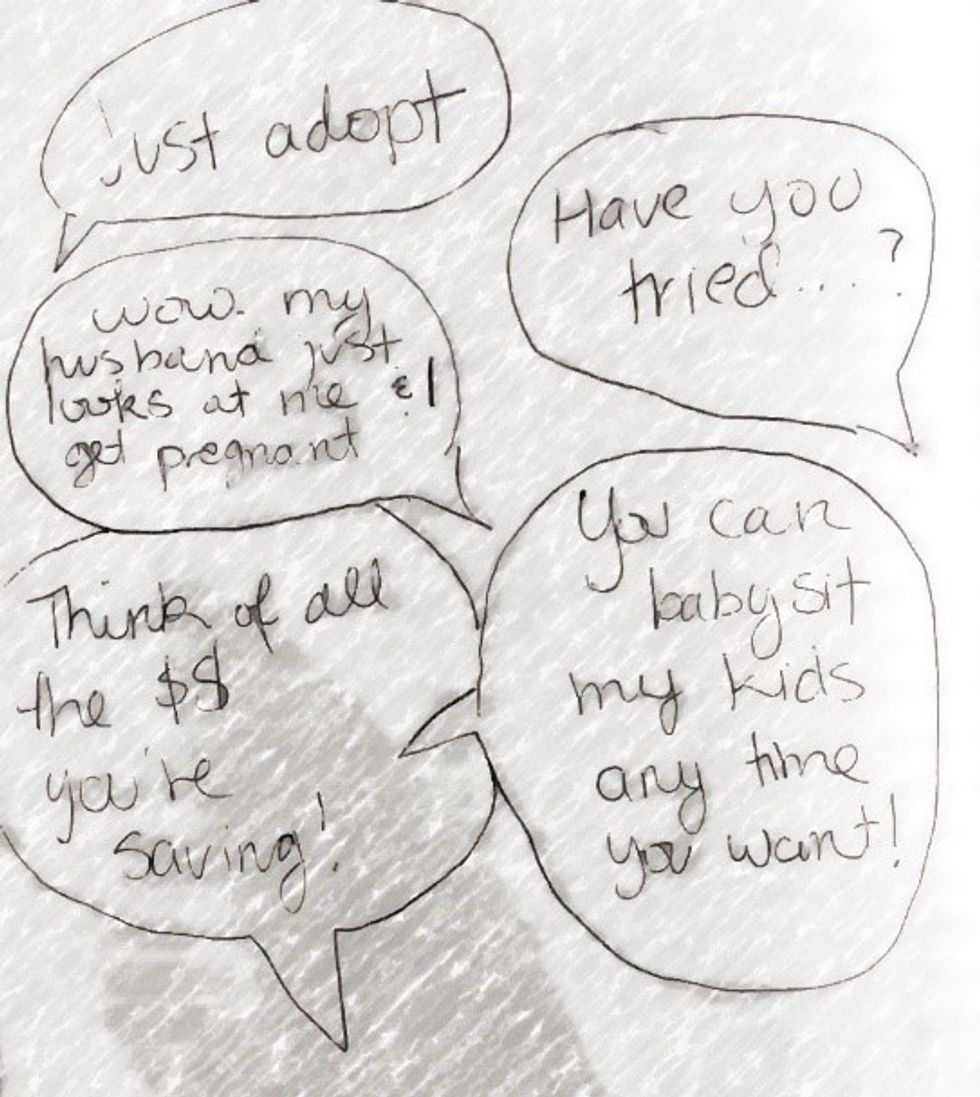 just adopt
Have you
tried....?
wow. my
husband just
looks at me & I
get pregnant
You can
babysit
my kids
any time
you want!
Think of all
the $$
you're
saving!